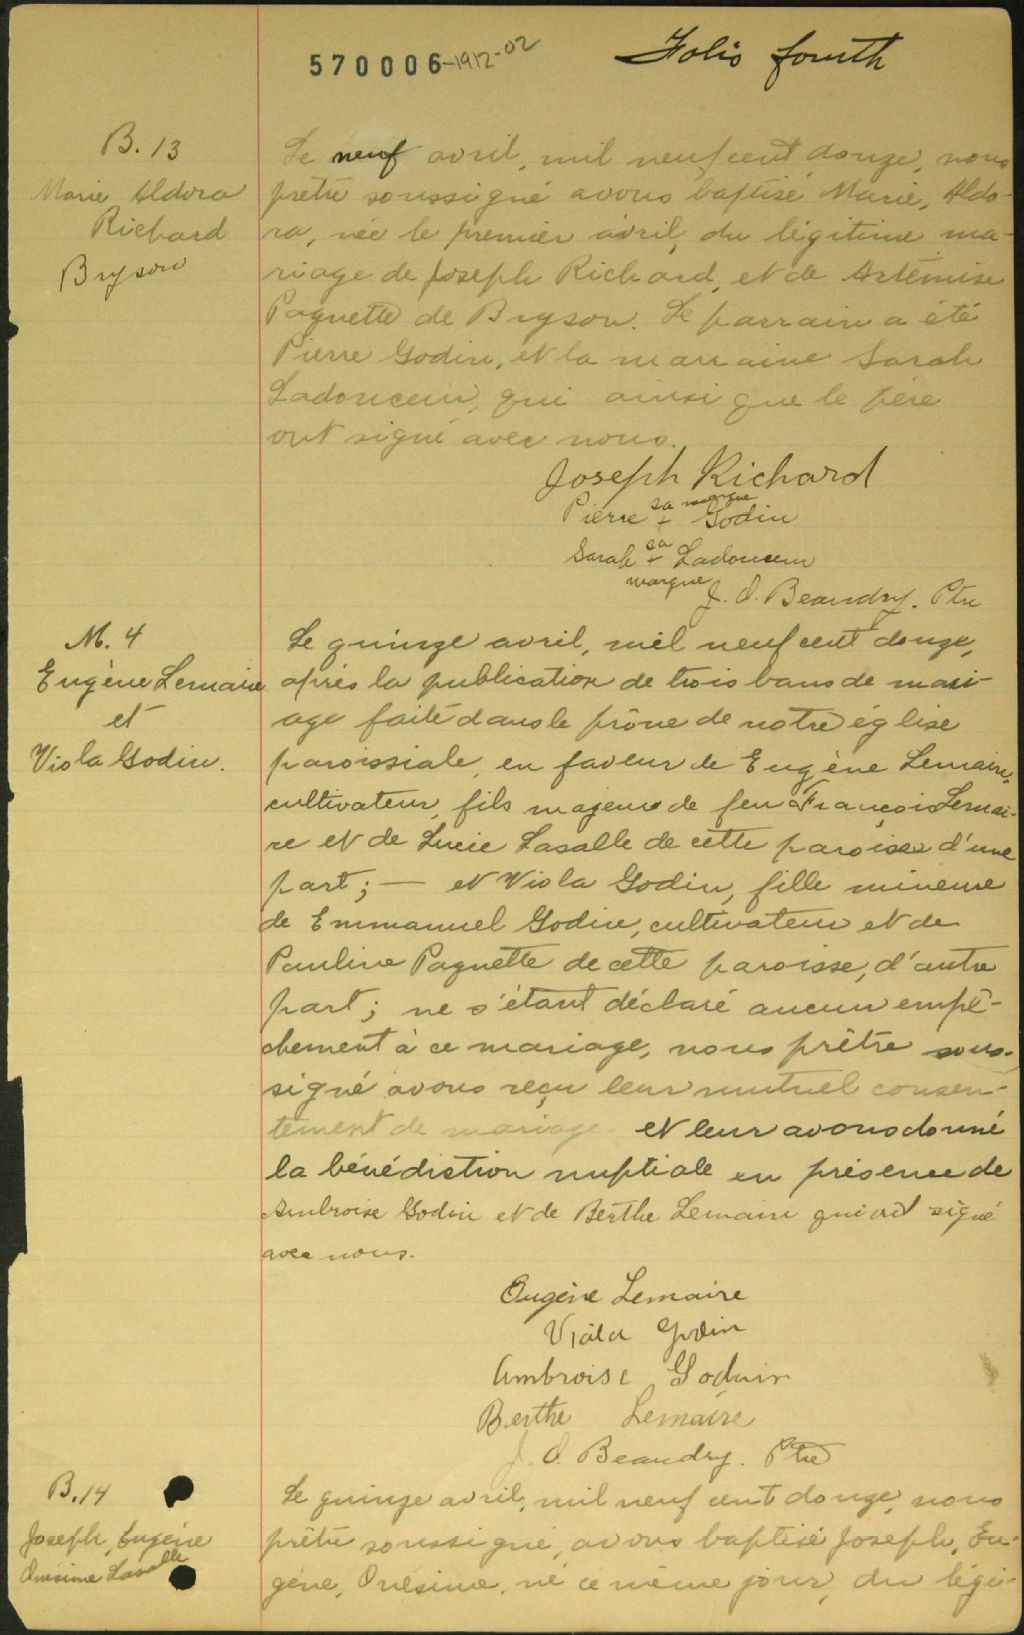 570006-1912-02
Folio fourth
B. 13
Marie Aldora
Richard
Bryson
Le neuf avril, mil neuf cent douze, nous
prêtre soussigné avons baptisé Marie, Aldo-
ra, née le premier avril, du légitime ma-
riage de Joseph Richard, et de Artémise
Paquette de Bryson. Le parrain a été
Pierre Godin, et la marraine Sarah
Ladouceur, qui ainsi que le père
ont signé avec nous.
Joseph Richard
Pierre sa marque + Godin
Sarah sa + marque Ladouceur
J. O. Beaudry. Ptre
M. 4
Eugène Lemaire
et
Viola Godin.
Le quinze avril, mil neuf cent douze,
après la publication de trois bans de mari-
age faite dans le prône de notre église
paroissiale, en faveur de Eugène Lemaire,
cultivateur, fils majeur de feu François Lemai-
re et de Lucie Lasalle de cette paroisse d'une
part; — et Viola Godin, fille mineure
de Emmanuel Godin, cultivateur et de
Pauline Paquette de cette paroisse, d'autre
part; ne s'étant déclaré aucun empê-
chement à ce mariage, nous prêtre sous-
signé avons reçu leur mutuel consen-
tement de mariage et leur avons donné
la bénédiction nuptiale en présence de
Ambroise Godin et de Berthe Lemaire qui ont signé
avec nous.
Eugène Lemaire
Viola Godin
Ambroise Goduin
Berthe Lemaire
J. O. Beaudry. Ptre
B. 14
Joseph, Eugène
Onésime Lasalle
Le quinze avril, mil neuf cent douze, nous
prêtre soussigné, avons baptisé Joseph, Eu-
gène, Onésime, né ce même jour, du légi-